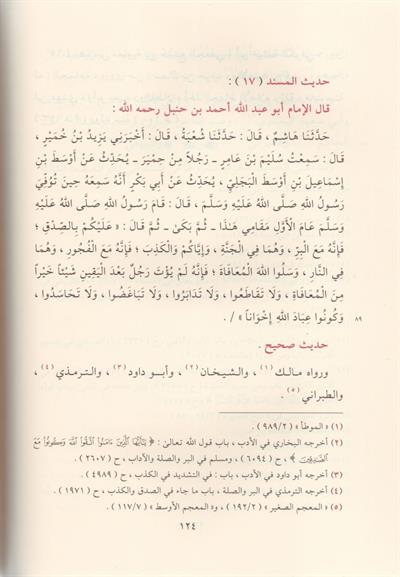 حديث المسند ( ١٧ ) :
قال الإمام أبو عبد الله أحمد بن حنبل رحمه الله :
حَدَّثَنَا هَاشِمٌ ، قَالَ : حَدَّثَنَا شُعْبَةُ ، قَالَ : أَخْبَرَنِي يَزِيدُ بْنُ خُمَيْرٍ ،
قَالَ : سَمِعْتُ سُلَيْمَ بْنَ عَامِرٍ - رَجُلاً مِنْ حِمْيَرَ - يُحَدِّثُ عَنْ أَوْسَطَ بْنِ
إِسْمَاعِيلَ بْنِ أَوْسَطَ الْبَجَلِيِّ ، يُحَدِّثُ عَنْ أَبِي بَكْرٍ أَنَّهُ سَمِعَهُ حِينَ تُوُفِّيَ
رَسُولُ اللهِ صَلَّى اللهُ عَلَيْهِ وَسَلَّمَ ، قَالَ : قَامَ رَسُولُ اللهِ صَلَّى اللهُ عَلَيْهِ
وَسَلَّمَ عَامَ الأَوَّلِ مَقَامِي هَٰذَا - ثُمَّ بَكَىٰ - ثُمَّ قَالَ : « عَلَيْكُمْ بِالصِّدْقِ ؛
فَإِنَّهُ مَعَ الْبِرِّ ، وَهُمَا فِي الْجَنَّةِ ، وَإِيَّاكُمْ وَالْكَذِبَ ؛ فَإِنَّهُ مَعَ الْفُجُورِ ، وَهُمَا
فِي النَّارِ ، وَسَلُوا اللهَ الْمُعَافَاةَ ؛ فَإِنَّهُ لَمْ يُؤْتَ رَجُلٌ بَعْدَ الْيَقِينِ شَيْئاً خَيْراً
مِنَ الْمُعَافَاةِ ، وَلَا تَقَاطَعُوا ، وَلَا تَدَابَرُوا ، وَلَا تَبَاغَضُوا ، وَلَا تَحَاسَدُوا ،
وَكُونُوا عِبَادَ اللهِ إِخْوَاناً » / . ٨٩
حديث صحيح .
ورواه مالك (١) ، والشيخان (٢) ، وأبو داود (٣) ، والترمذي (٤) ،
والطبراني (٥) .
(١) « الموطأ » ( ٩٨٩/٢ ) .
(٢) أخرجه البخاري في الأدب ، باب قول الله تعالىٰ : ﴿ يَٰٓأَيُّهَا ٱلَّذِينَ ءَامَنُوا۟ ٱتَّقُوا۟ ٱللَّهَ وَكُونُوا۟ مَعَ
ٱلصَّٰدِقِينَ ﴾ ، ح ( ٦٠٩٤ ) ، ومسلم في البر والصلة والآداب ، ح ( ٢٦٠٧ ) .
(٣) أخرجه أبو داود في الأدب ، باب : في التشديد في الكذب ، ح ( ٤٩٨٩ ) .
(٤) أخرجه الترمذي في البر والصلة ، باب ما جاء في الصدق والكذب ، ح ( ١٩٧١ ) .
(٥) « المعجم الصغير » ( ١٩٢/٢ ) ، و« المعجم الأوسط » ( ١١٧/٧ ) .
١٢٤